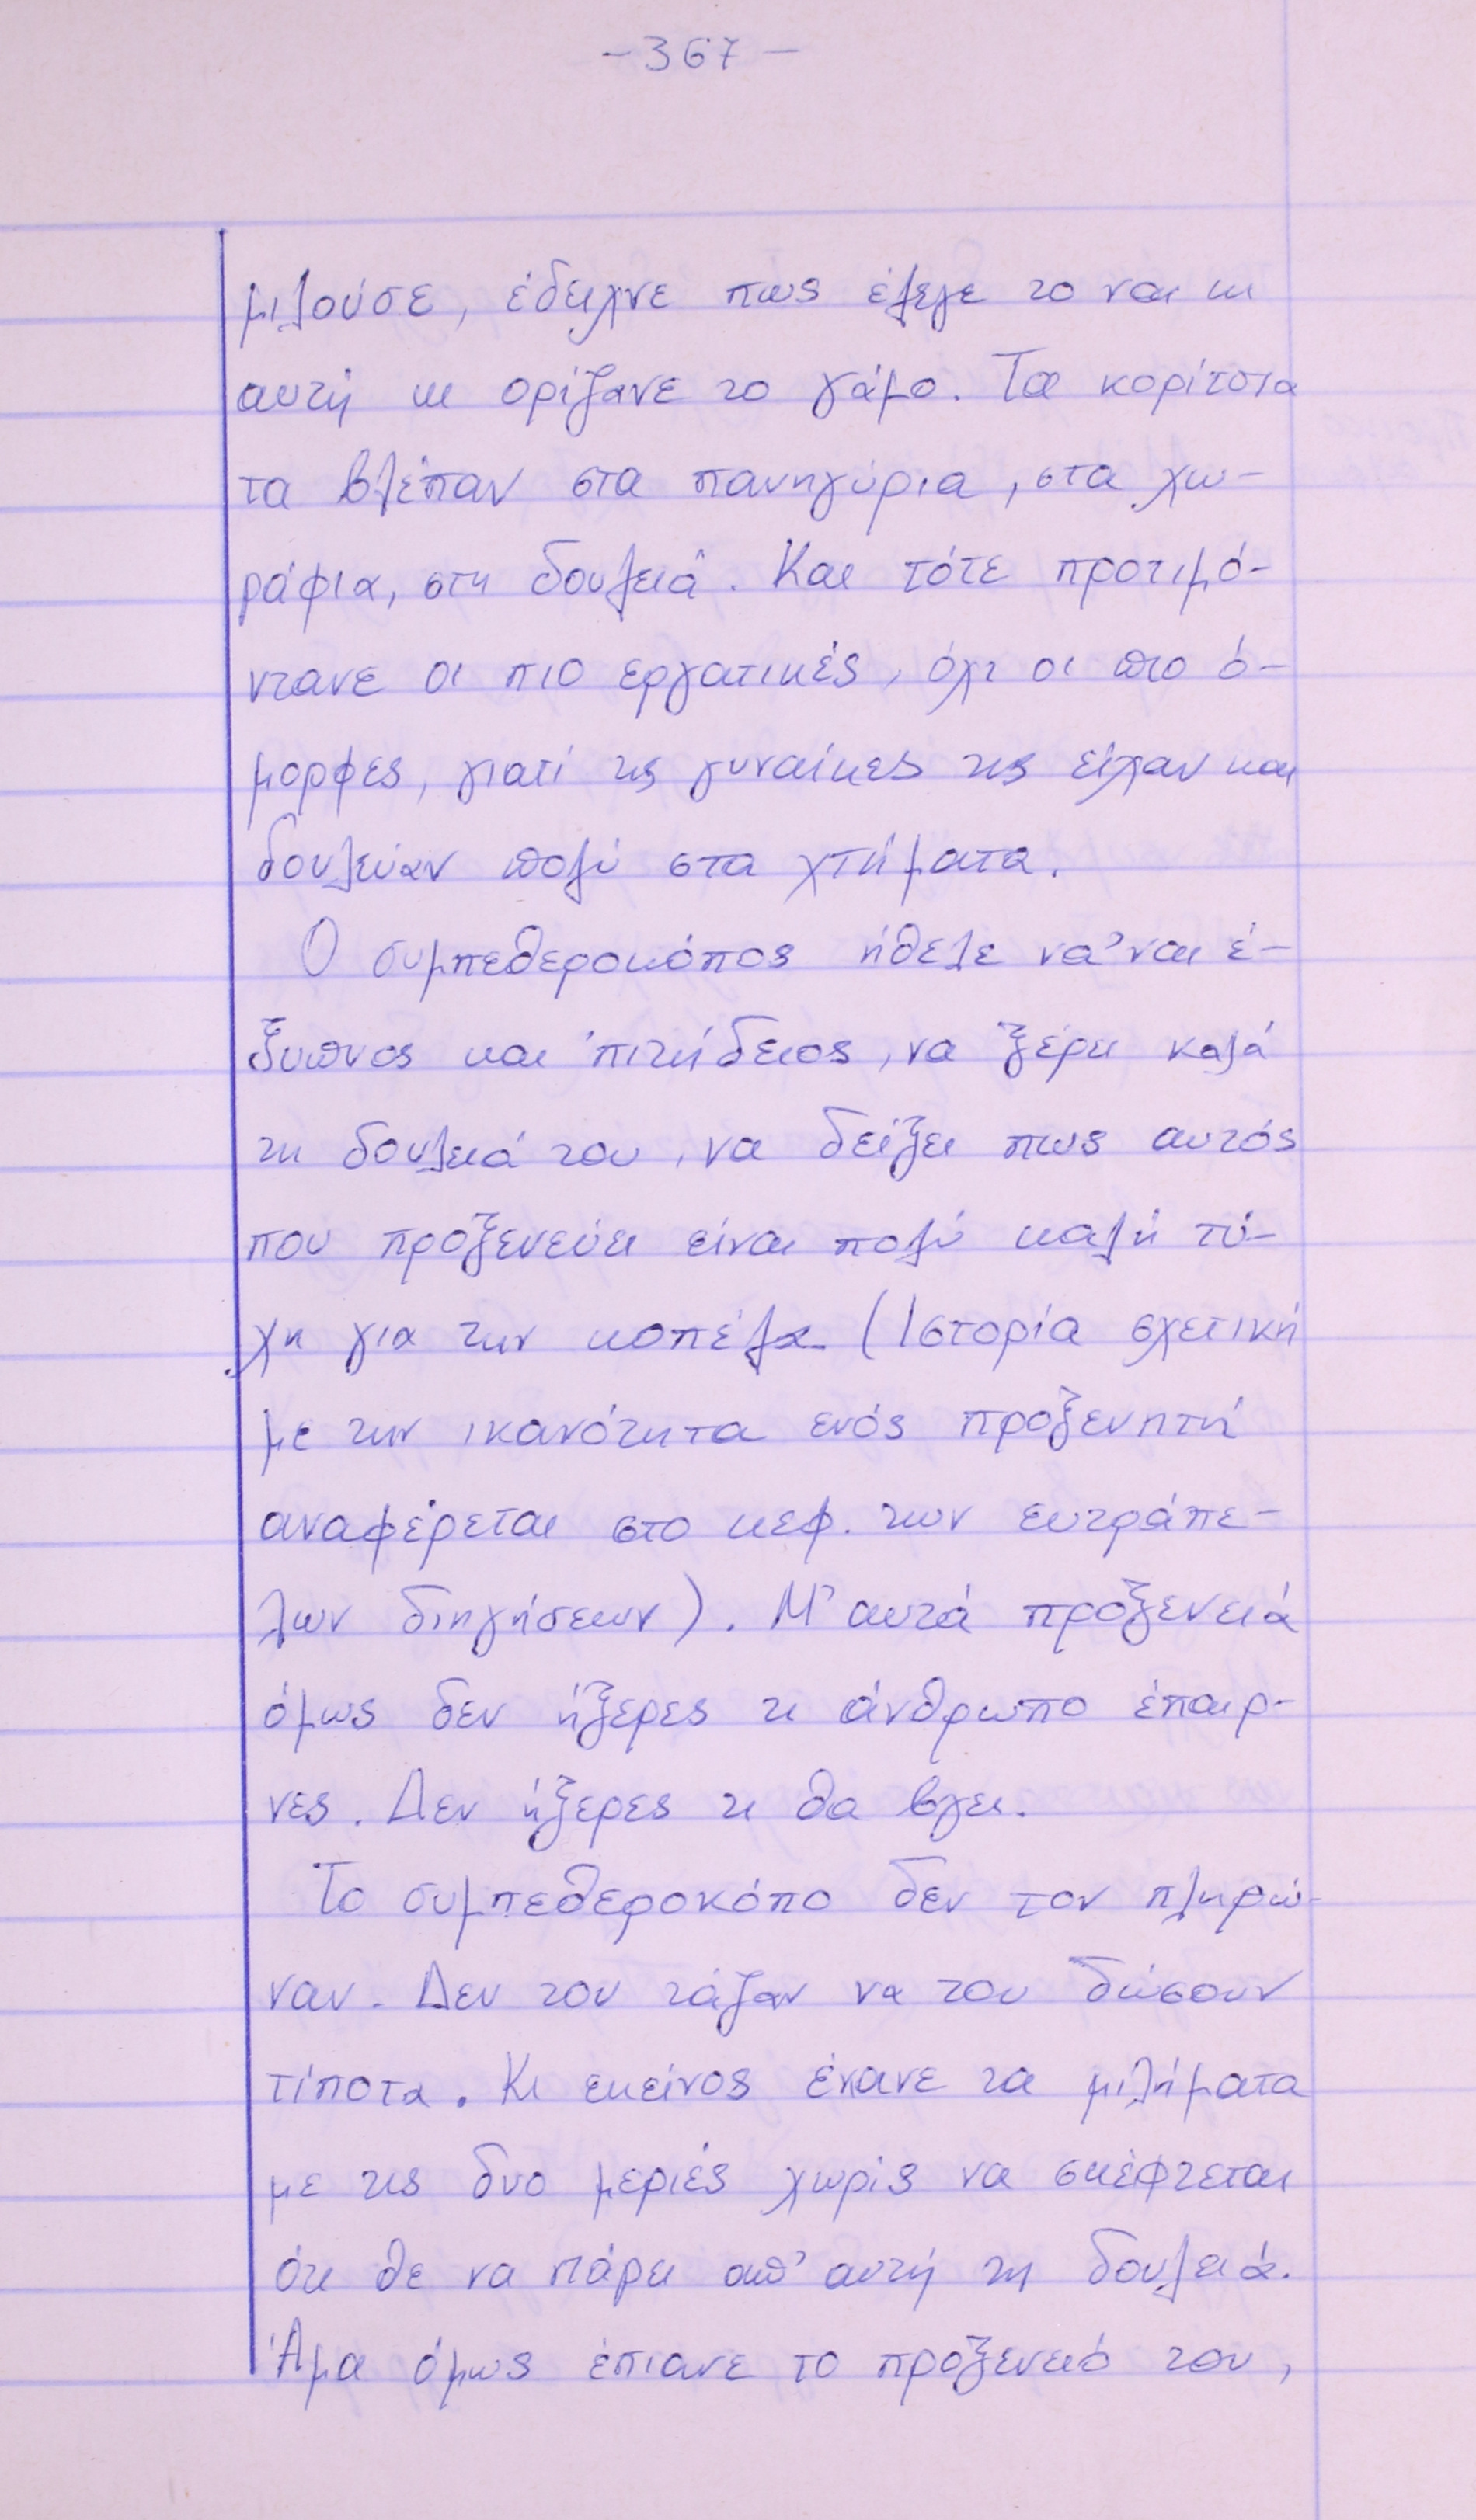 -367-
μιλούσε, έδειχνε πως έλεγε το ναι κι
αυτή κι ορίζανε το γάμο. Τα κορίτσια
τα βλέπαν στα πανηγύρια, στα χω-
ράφια, στη δουλειά. Και τότε προτιμό-
ντανε οι πιο εργατικές, όχι οι πιο ό-
μορφες, γιατί τις γυναίκες τις είχαν και
δουλεύαν πολύ στα χτήματα.
Ο συμπεθεροκόπος ήθελε να'ναι έ-
ξυπνος και 'πιτήδειος, να ξέρει καλά
τη δουλειά του, να δείξει πως αυτός
που προξενεύει είναι πολύ καλή τύ-
χη για την κοπέλα (Ιστορία σχετική
με την ικανότητα ενός προξενητή
αναφέρεται στο κεφ. των ευτράπε-
λων διηγήσεων). Μ' αυτά προξενειά
όμως δεν ήξερες τι άνθρωπο έπαιρ-
νες. Δεν ήξερες τι θα βγει.
Το συμπεθεροκόπο δεν τον πληρώ-
ναν. Δεν του τάζαν να του δώσουν
τίποτα. Κι εκείνος έκανε τα μιλήματα
με τις δυο μεριές χωρίς να σκέφτεται
ότι θε να πάρει απ' αυτή τη δουλειά.
Άμα όμως έπιανε το προξενειό του,